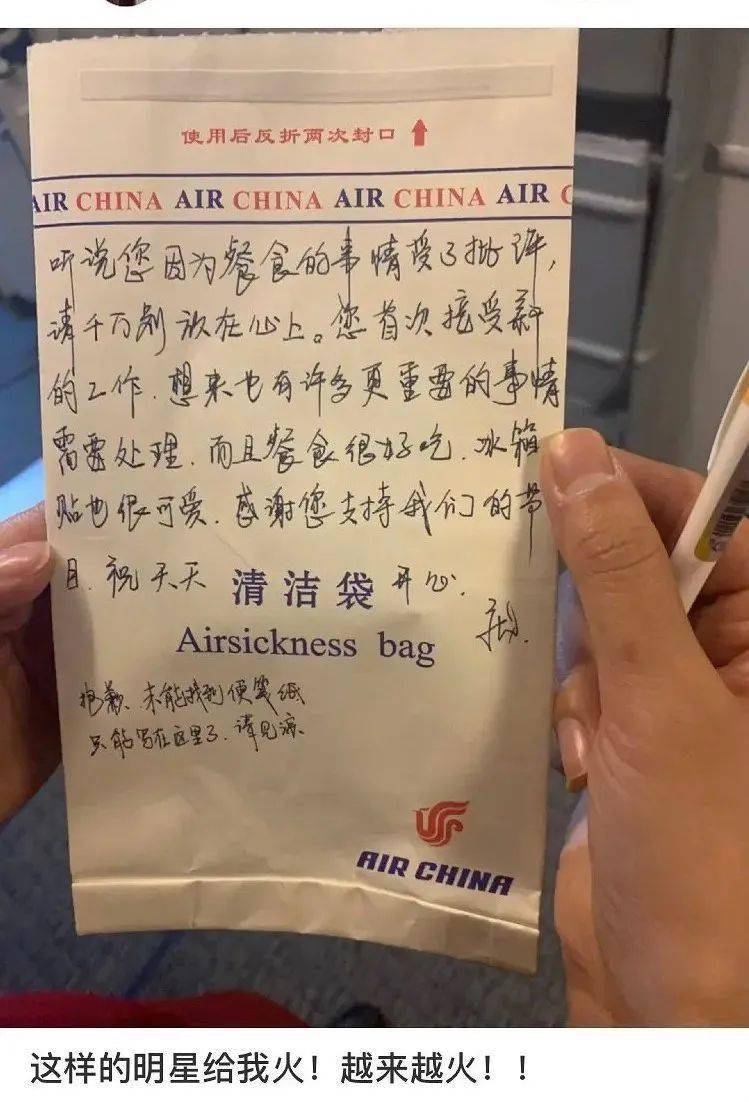 使用后反折两次封口
AIR CHINA AIR CHINA AIR CHINA AIR C
听说您因为餐食的事情受了批评，
请千万别放在心上。您首次接受新
的工作，想来也有许多更重要的事情
需要处理，而且餐食很好吃，冰箱
贴也很可爱，感谢您支持我们的节
目，祝天天 清洁袋 开心。
Airsickness bag
抱歉，未能找到便笺纸
只能写在这里了，请见谅
AIR CHINA
这样的明星给我火！越来越火！！